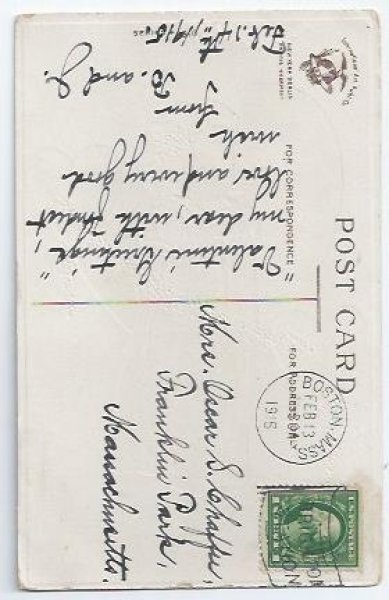 POST CARD
FOR CORRESPONDENCE
FOR ADDRESS ONLY
BOSTON, MASS
FEB 13
1915
Feb. 14th, 1915.
"Valentine Greetings,"
my dear, with fondest
love and every good
wish
from B. and J.
Mrs. Oscar S. Chaffee,
Franklin Park,
Massachusetts.